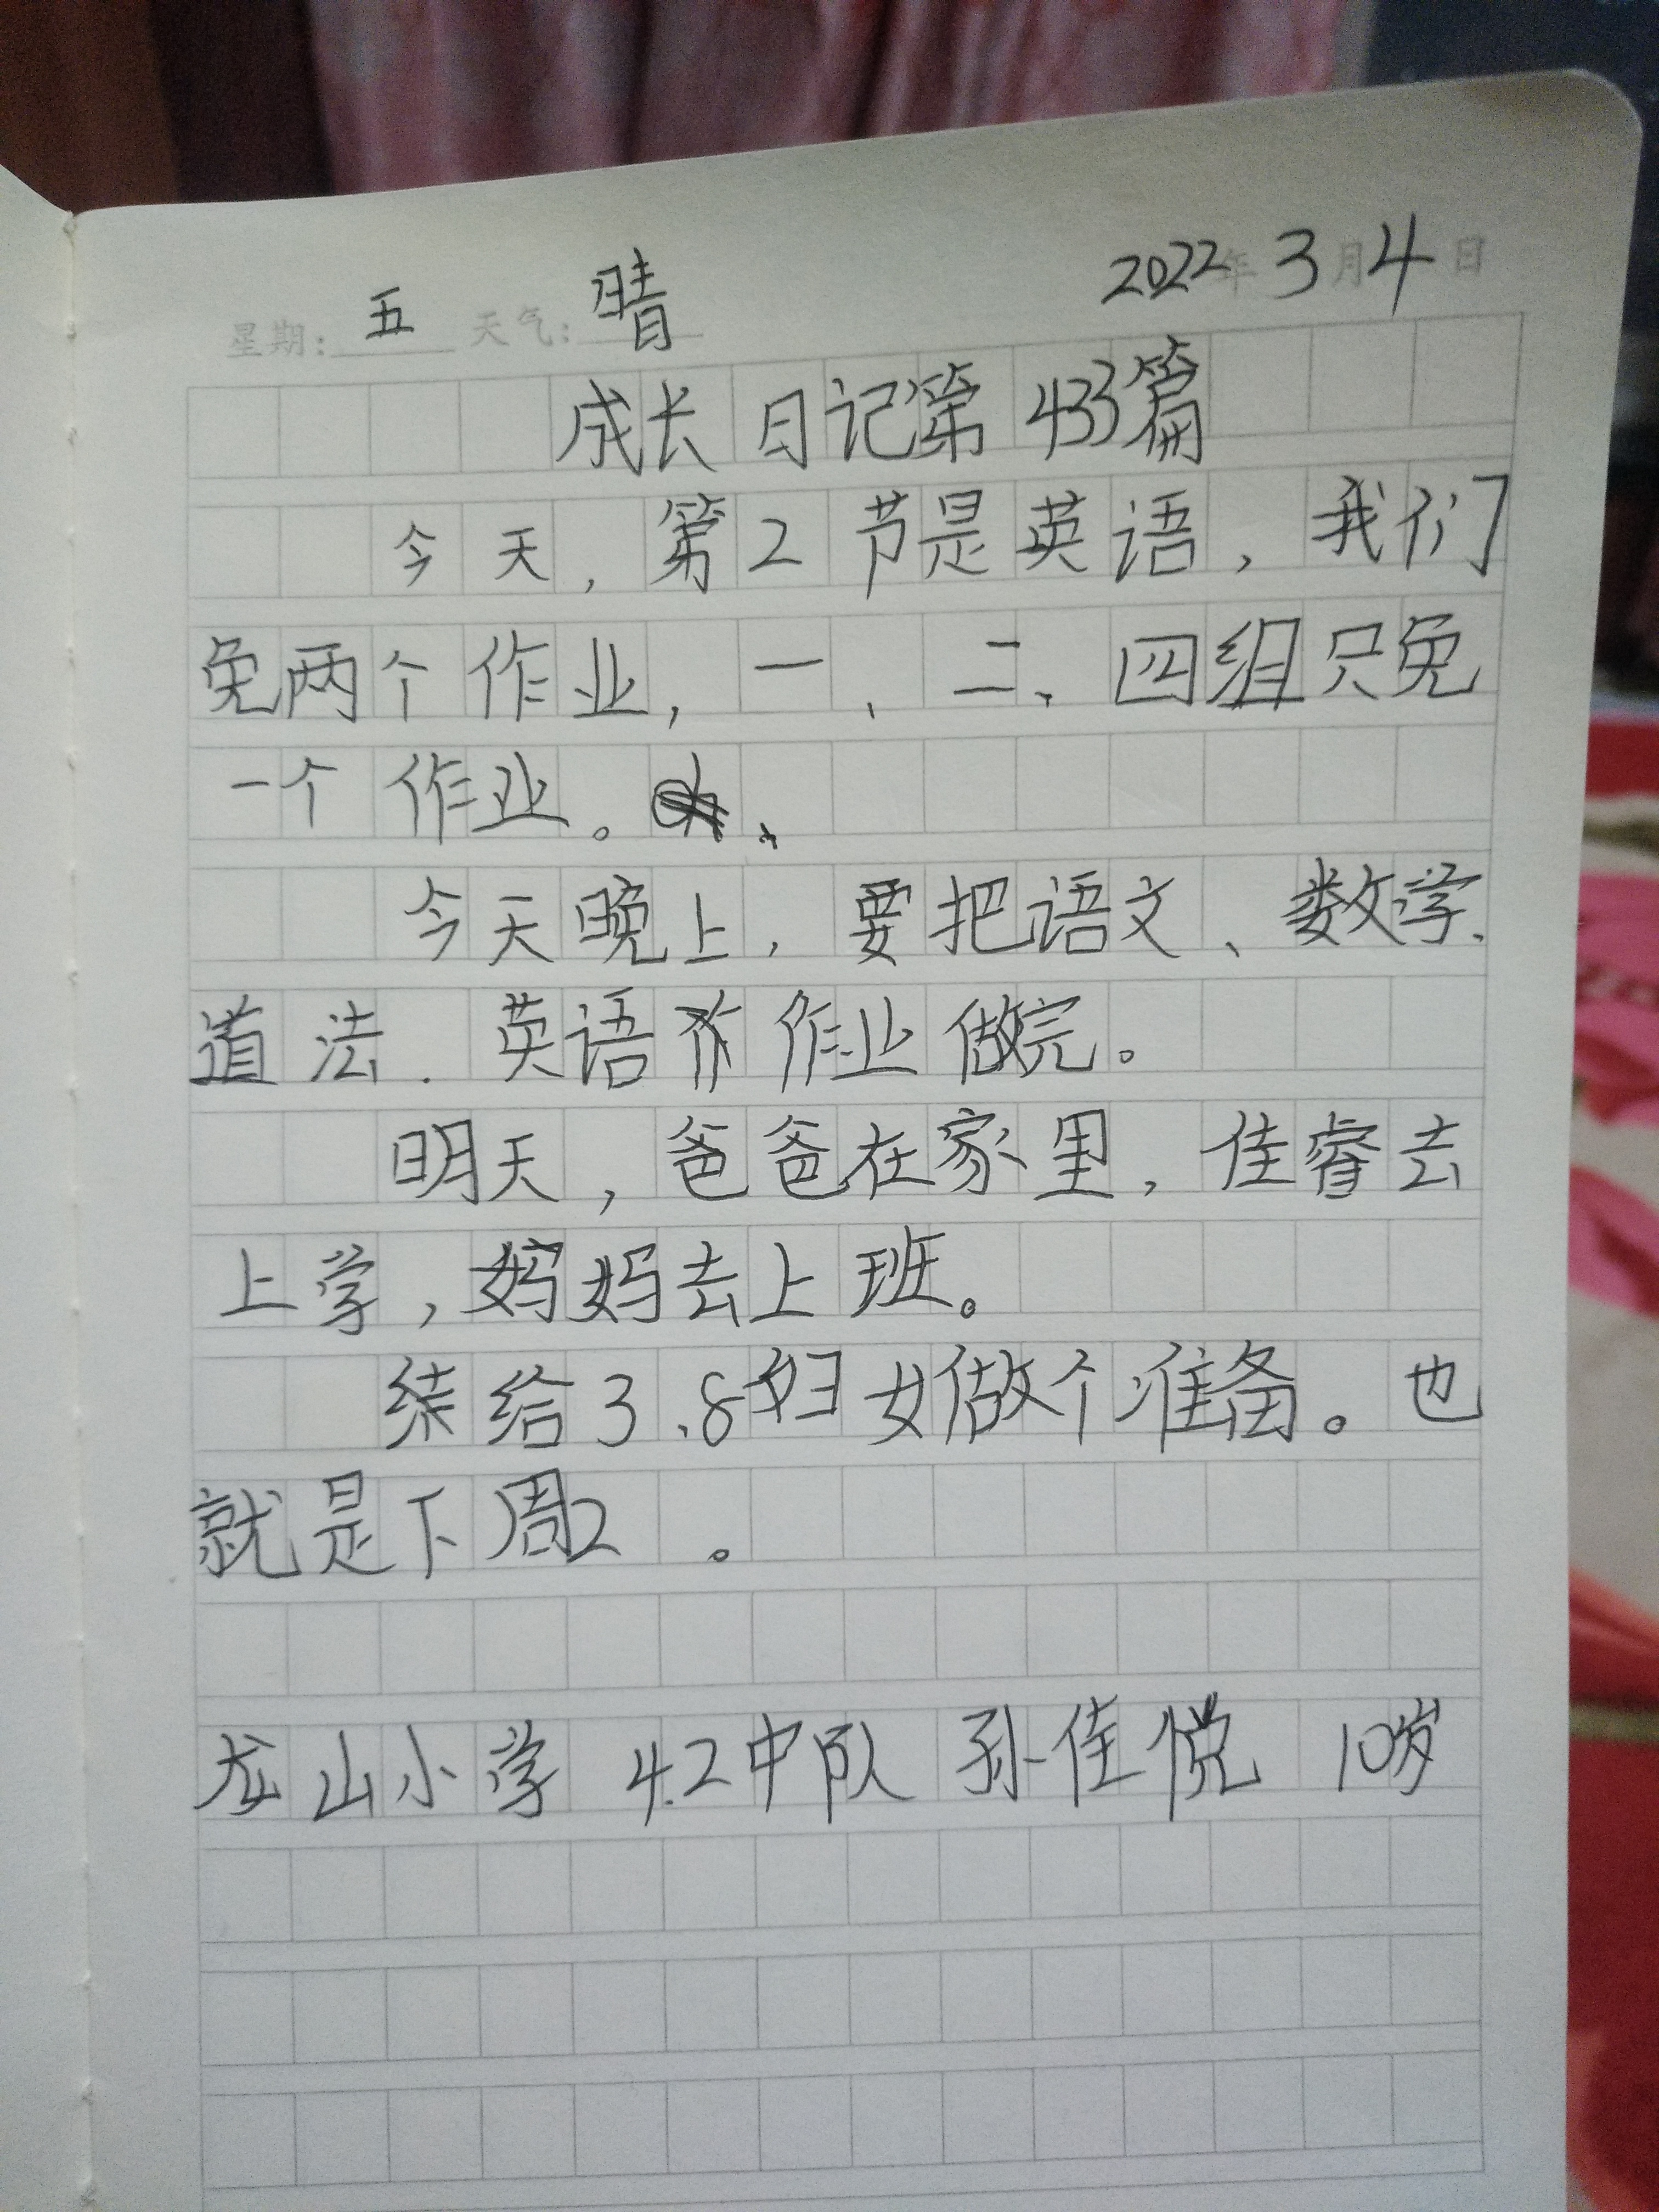 2022年3月4日
星期：五 天气：晴
成长日记第433篇
今天，第2节是英语，我们
免两个作业，一、二、四组只免
一个作业。
今天晚上，要把语文、数学、
道法．英语作业做完。
明天，爸爸在家里，佳睿去
上学，妈妈去上班。
给3.8妇女做个准备。也
就是下周2。
龙山小学 4.2中队 孙佳悦 10岁